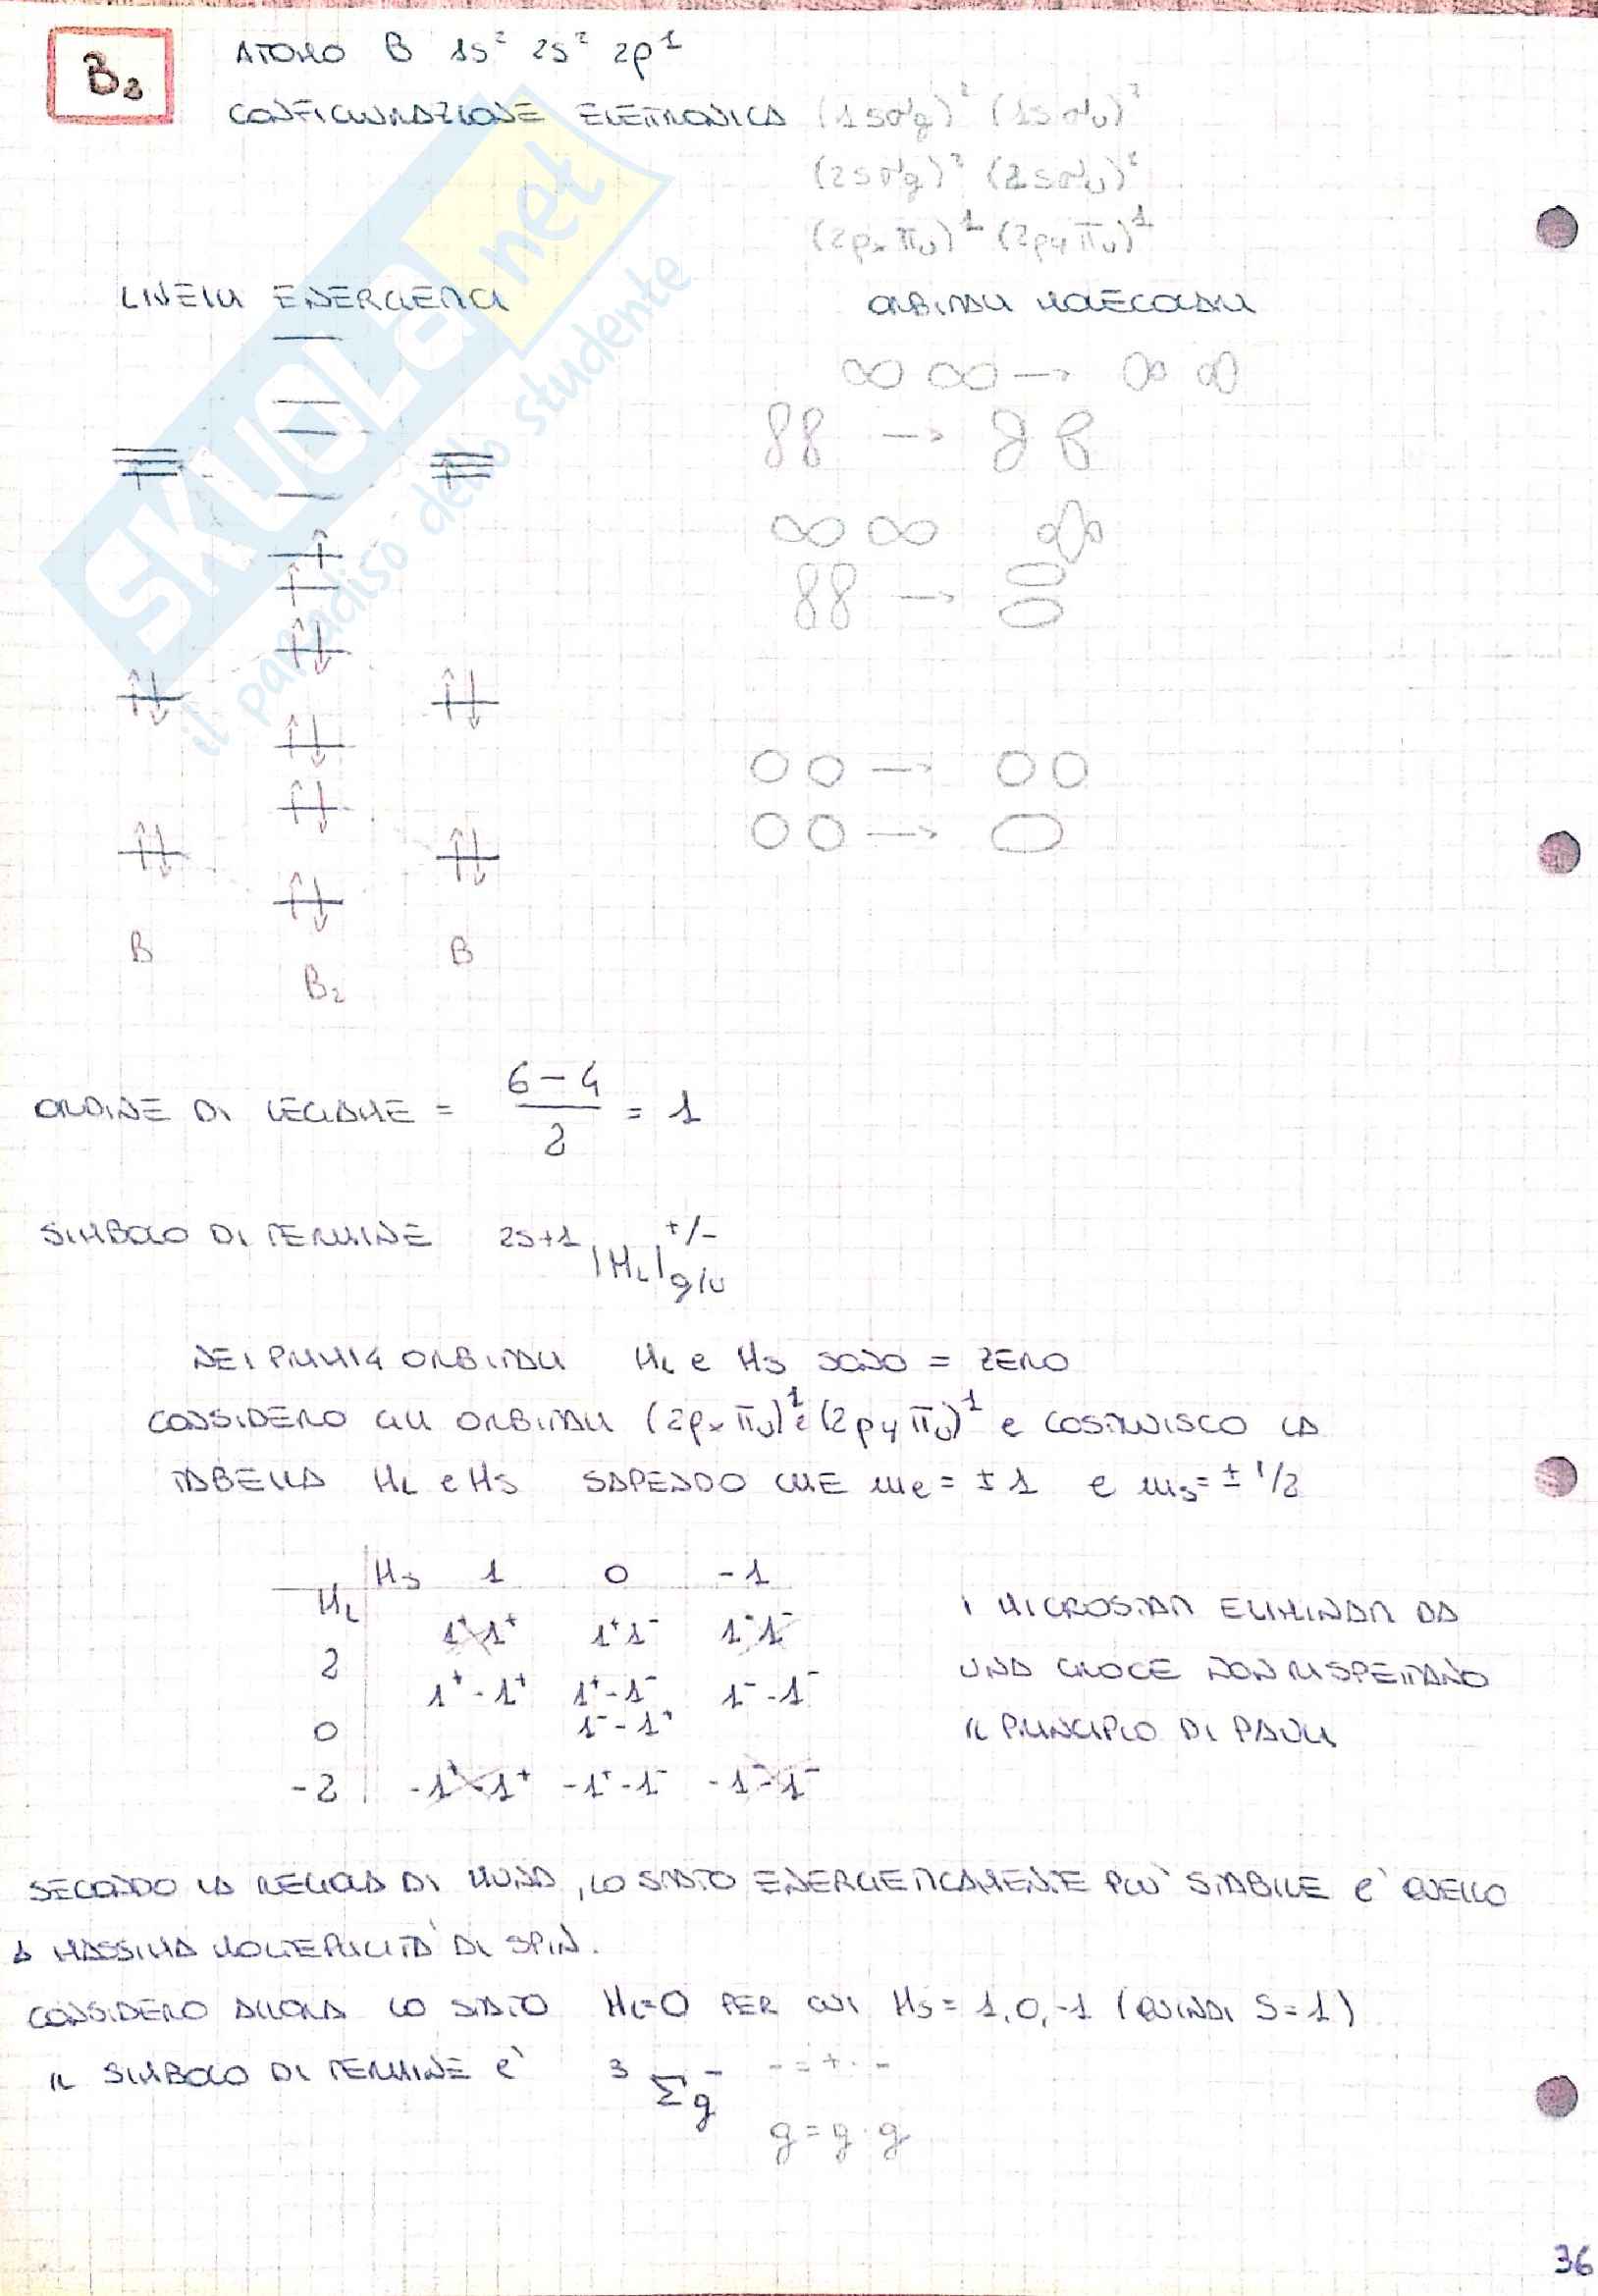 B₂
ATOMO B 1s² 2s² 2p¹
CONFIGURAZIONE ELETTRONICA (1sσg)² (1sσu)²
(2sσg)² (2sσu)²
(2pₓ πu)¹ (2py πu)¹
LIVELLI ENERGETICI
ORBITALI MOLECOLARI
SKUOLA.net
il paradiso dello studente
B
B
B₂
ORDINE DI LEGAME = (6-4)/2 = 1
SIMBOLO DI TERMINE 2S+1 |ML| +/- g/u
NEI PRIMI 4 ORBITALI ML e MS SONO = ZERO
CONSIDERO GLI ORBITALI (2pₓ πu)¹ e (2py πu)¹ e COSTRUISCO LA
TABELLA ML e MS SAPENDO CHE me = ±1 e ms = ±1/2
MS 1 0 -1
ML
1⁺1⁺ 1⁺1⁻ 1⁻1⁻
2
1⁺-1⁺ 1⁺-1⁻ 1⁻-1⁻
0 1⁻-1⁺
-2 -1⁺-1⁺ -1⁺-1⁻ -1⁻-1⁻
I MICROSTATI ELIMINATI DA
UNA CROCE NON RISPETTANO
IL PRINCIPIO DI PAULI
SECONDO LA REGOLA DI HUND, LO STATO ENERGETICAMENTE PIU' STABILE E' QUELLO
A MASSIMA MOLTEPLICITA' DI SPIN.
CONSIDERO ALLORA LO STATO ML=0 PER CUI MS = 1,0,-1 (QUINDI S=1)
IL SIMBOLO DI TERMINE E' ³Σg⁻ - = + · -
g = g · g
36